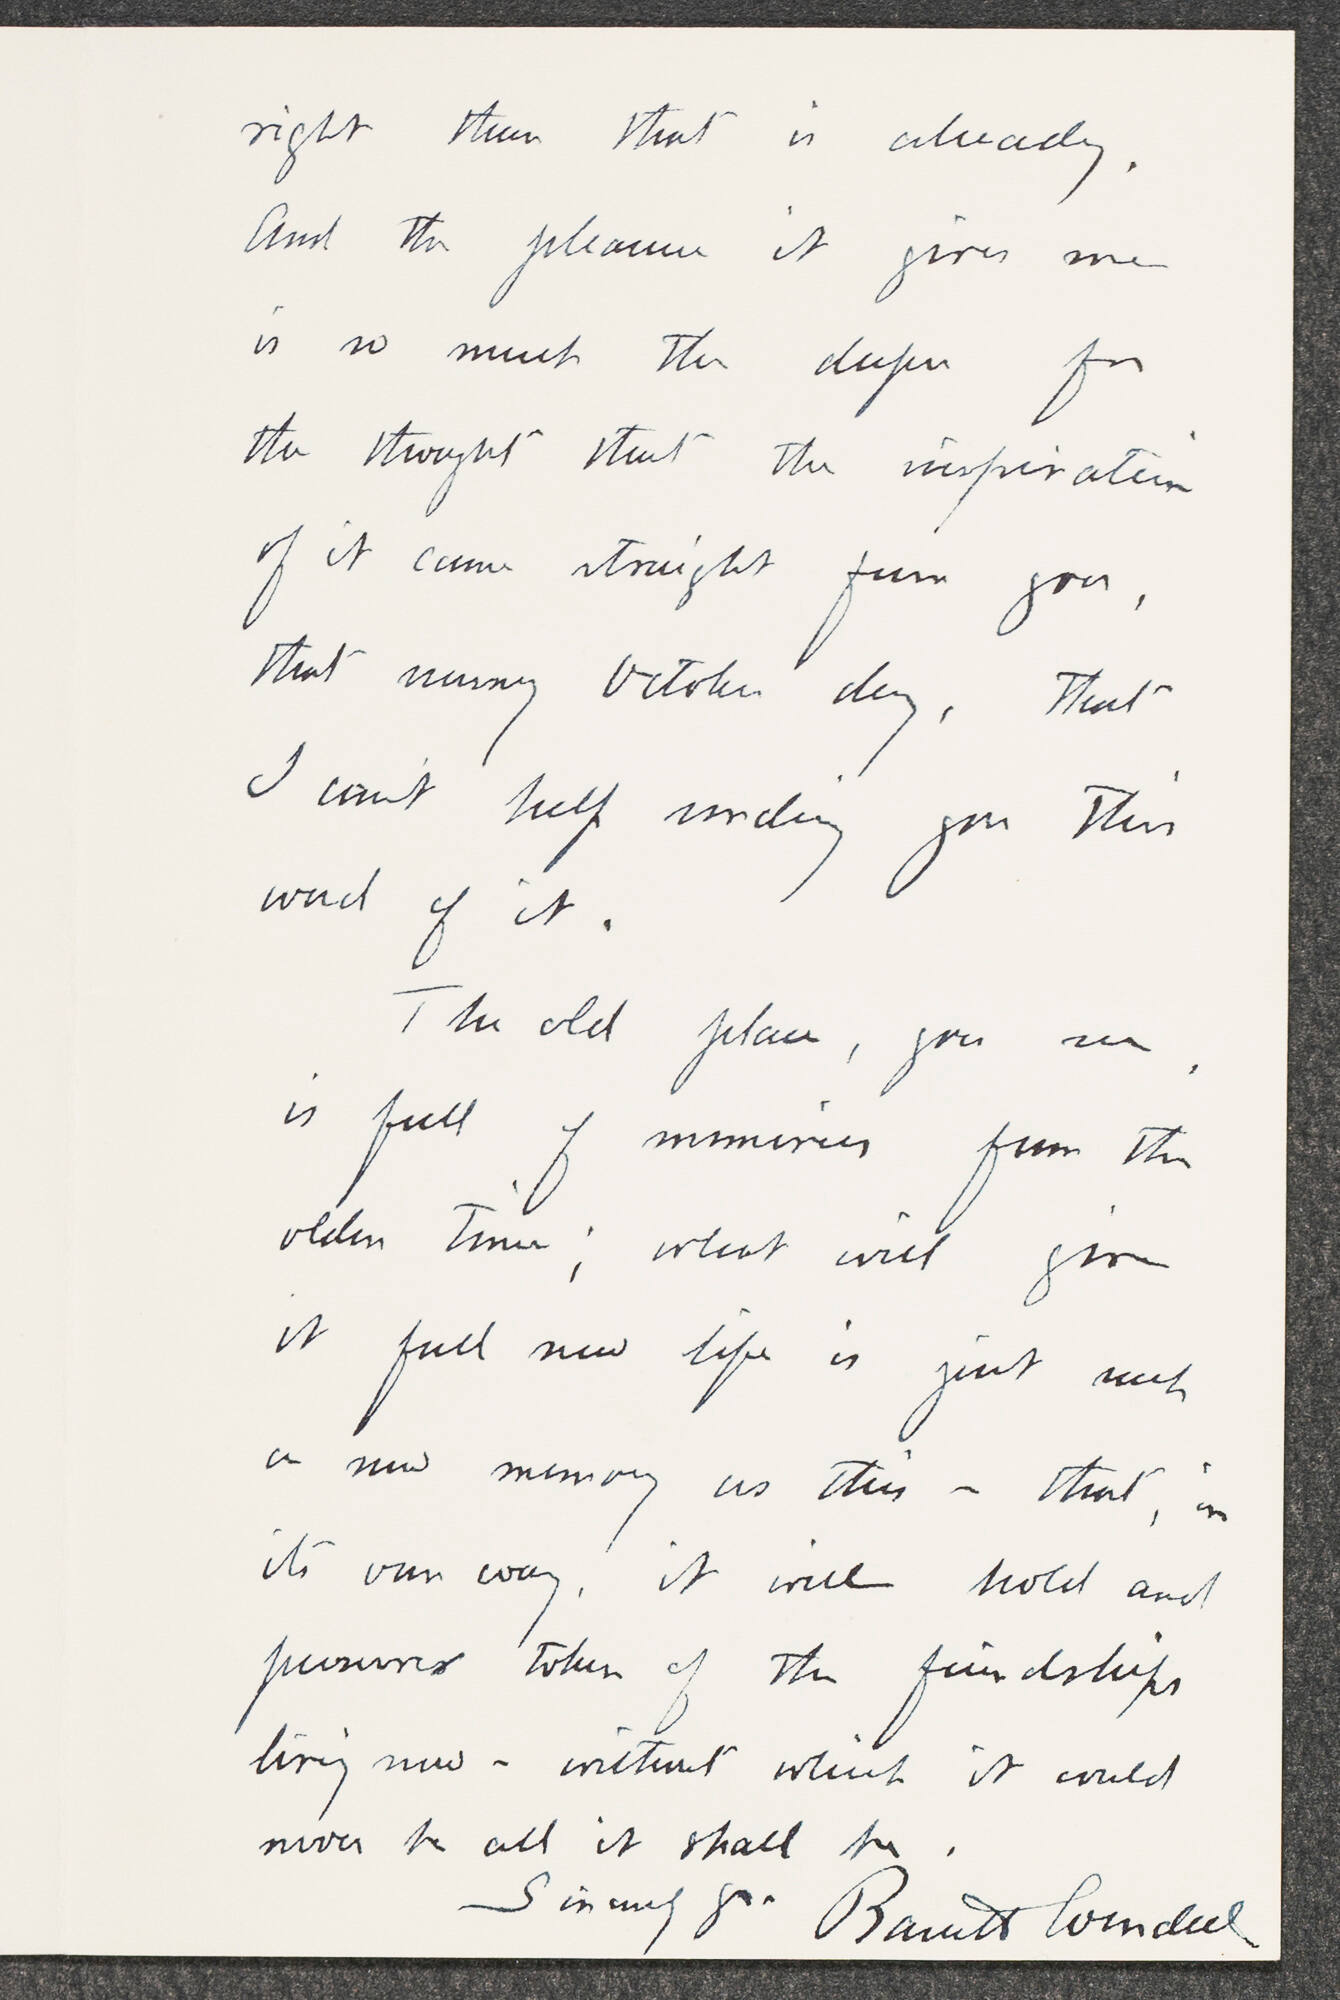 right than that is already.
And the pleasure it gives me
is so much the deeper for
the thought that the inspiration
of it came straight from you,
that sunny October day, that
I can't help sending you this
word of it.
The old place, you see,
is full of memories from the
olden time; what will give
it full new life is just such
a new memory as this - that, in
its own way, it will hold and
preserve token of the friendships
living now - without which it could
never be all it shall be.
Sincerely yrs Barrett Wendell